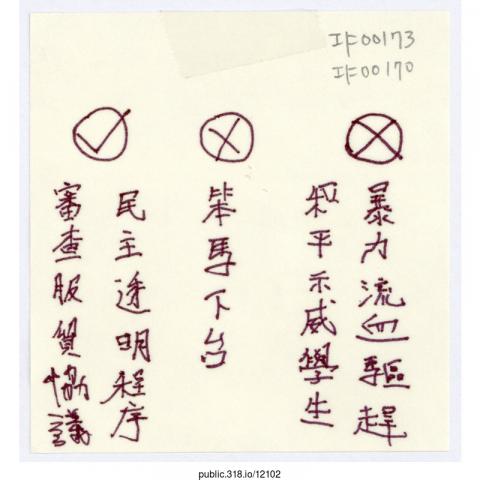 IF00173
IF00170
暴力流血驅趕
和平示威學生
笨馬下台
民主透明程序
審查服貿協議
public.318.io/12102